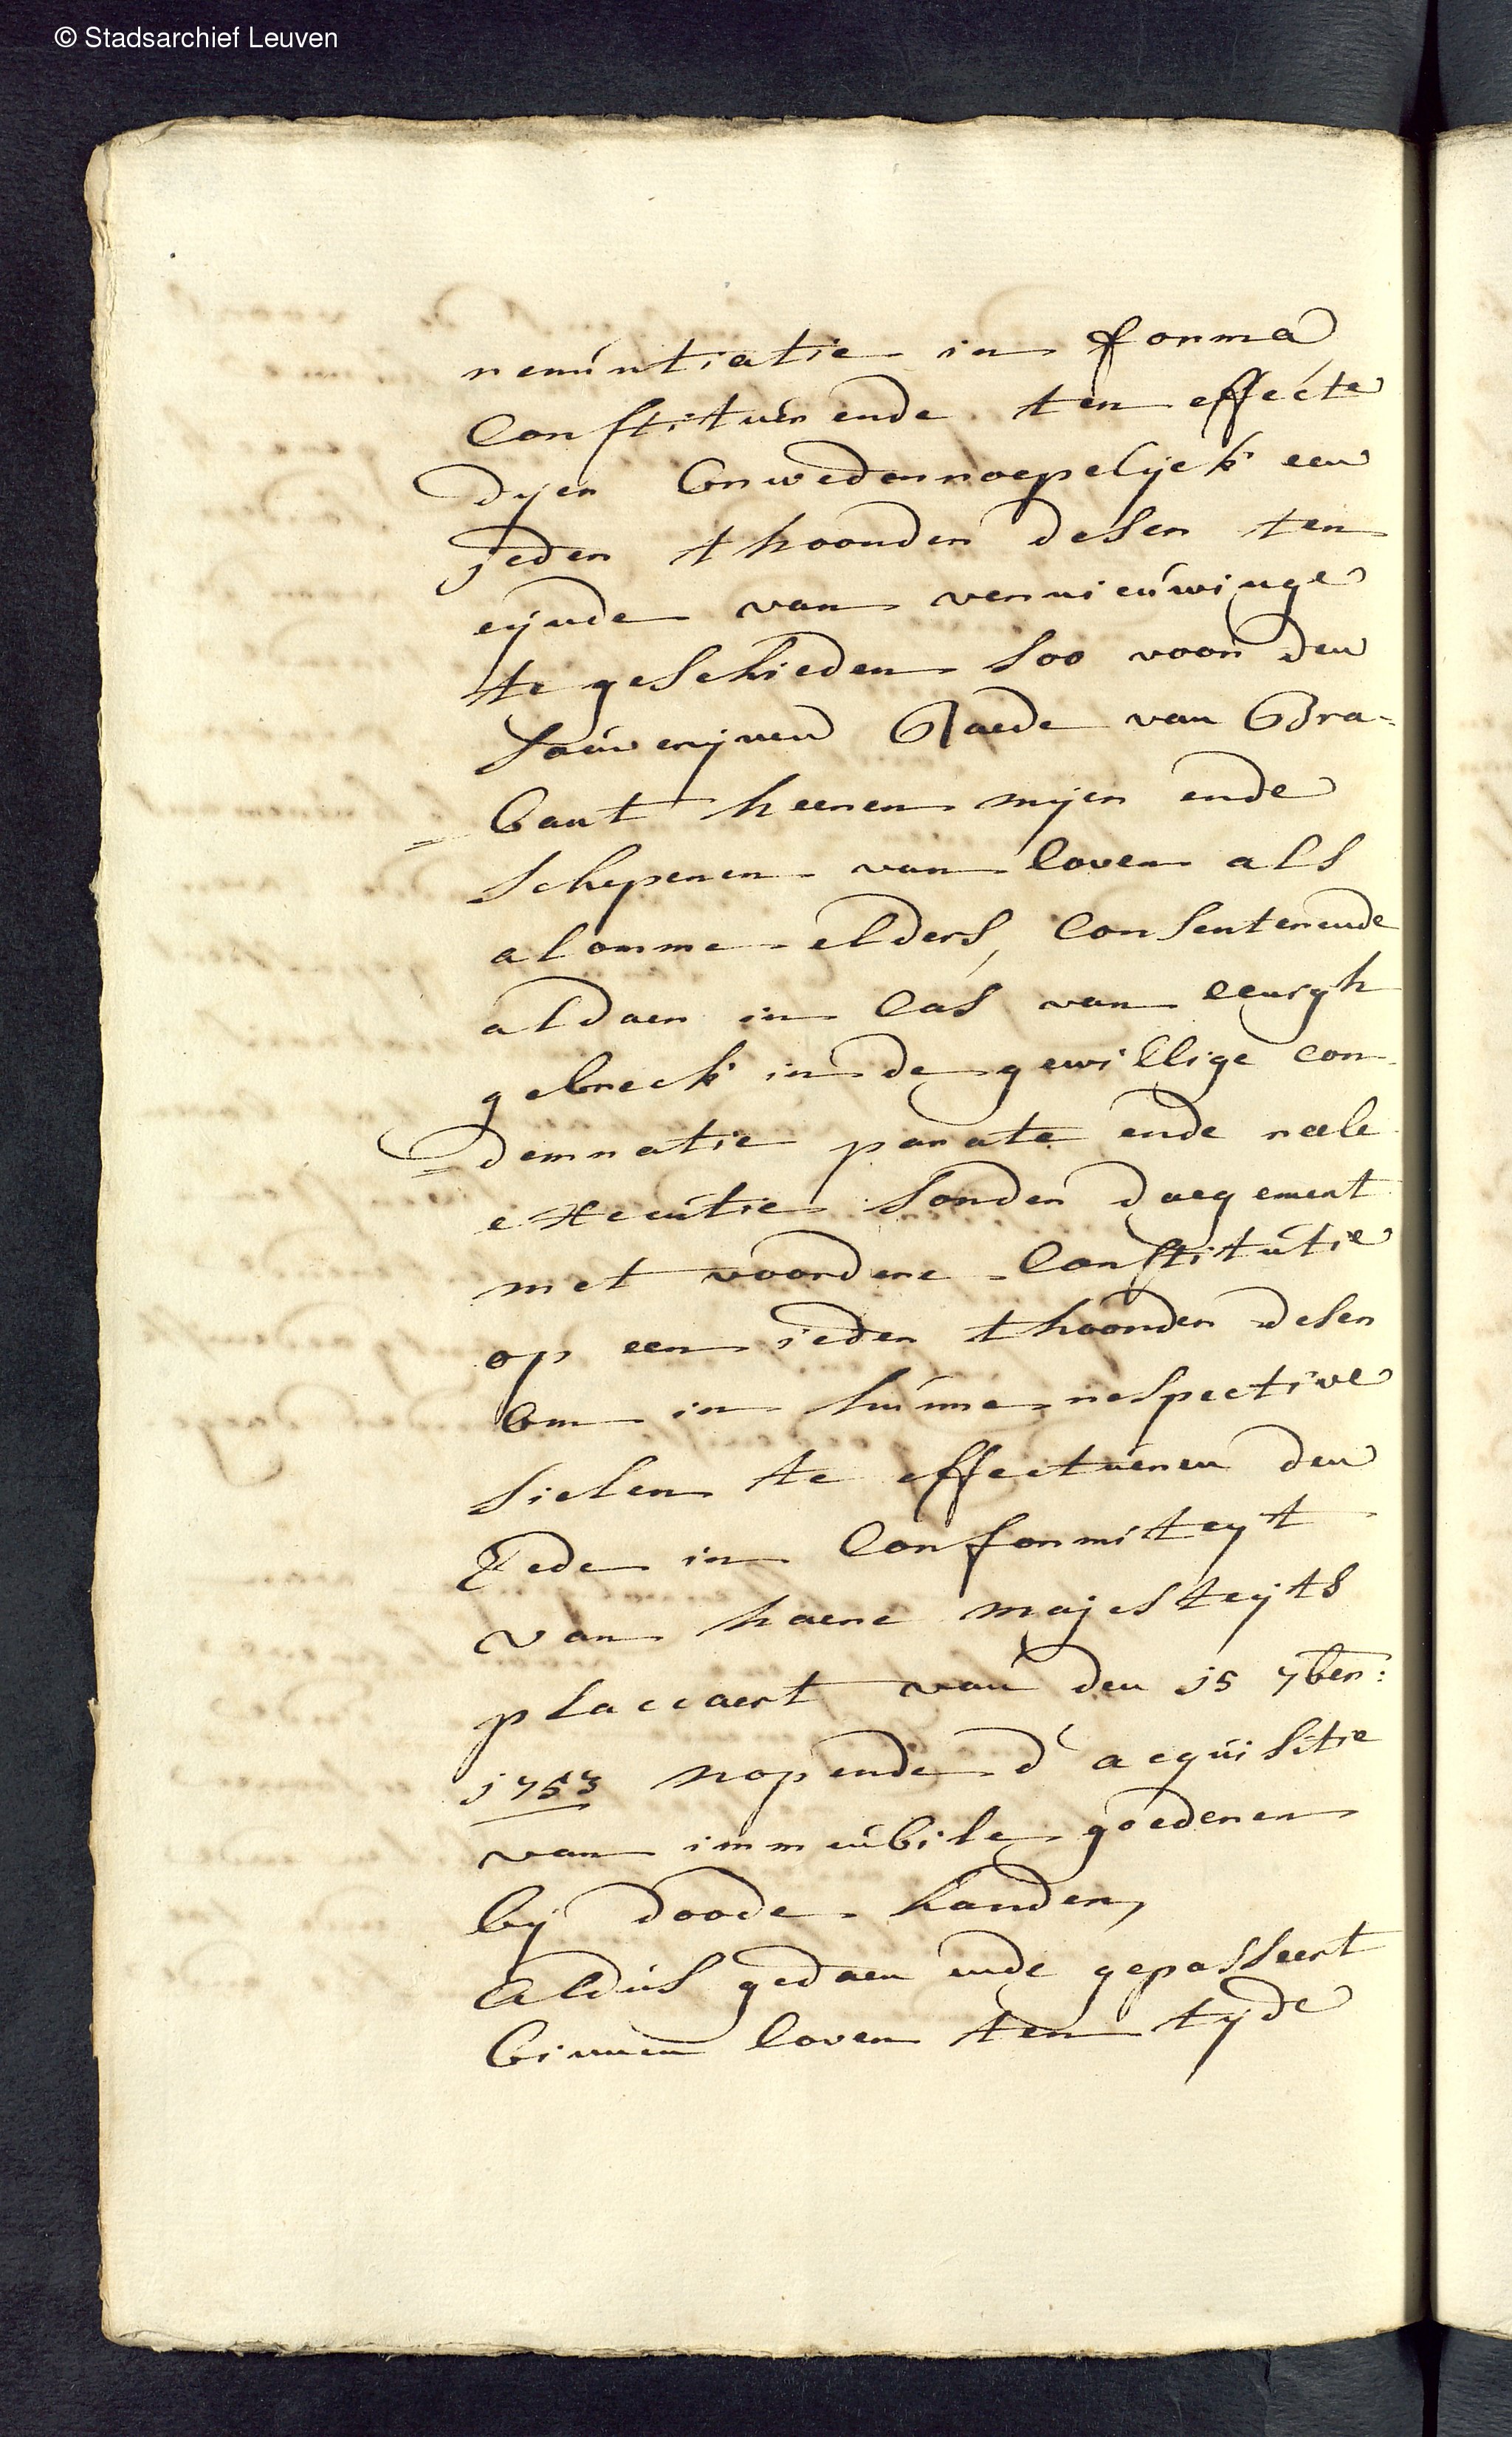 © Stadsarchief Leuven
renúntiatie in forma
Constituerende ten effecte
dijen onwederroepelijck een
jeder thoonder deser ten
eijnde van vernieúwinge
te geschieden soo voor den
Soúverijnen Raede van Bra-
bant heeren mijer ende
schepenen van loven als
alomme elders, Consenterende
aldaer in Cas van eenigh
gebreck in de gewillige con-
demnatie parate ende reele
executie sonder daegement
met voordere Constitútie
op een ieder thoonder deser
om in húnne respective
sielen te effectúeren den
Eede in Conformiteyt
van haere majesteijts
placcaert van den 15 7ber:
1753 nopende d'acqúisitie
van immeúbile goederen
bij doode handen,
Aldús gedaen ende gepasseert
binnen loven ten tijde